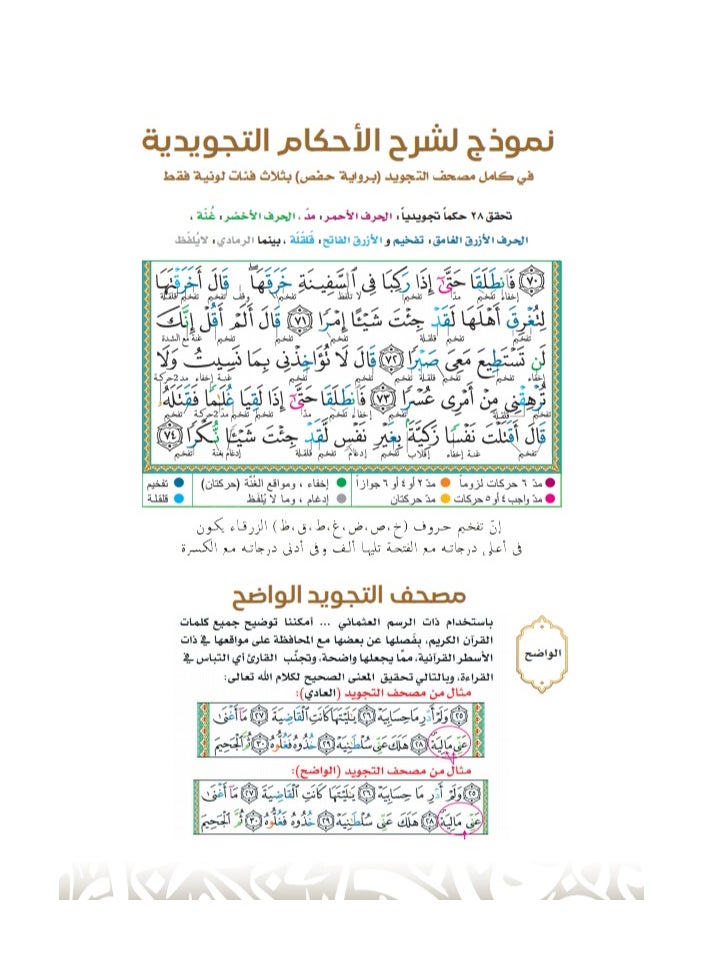 نموذج لشرح الأحكام التجويدية
في كامل مصحف التجويد (برواية حفص) بثلاث فئات لونية فقط
تحقق ٢٨ حكماً تجويدياً: الحرف الأحمر: مدّ ، الحرف الأخضر: غُنّة ،
الحرف الأزرق الغامق: تفخيم و الأزرق الفاتح: قلقلة ، بينما الرمادي: لا يُلفَظ
٧٠ فَٱنطَلَقَا حَتَّىٰٓ إِذَا رَكِبَا فِى ٱلسَّفِينَةِ خَرَقَهَا ۖ قَالَ أَخَرَقْتَهَا
لِتُغْرِقَ أَهْلَهَا لَقَدْ جِئْتَ شَيْـًٔا إِمْرًا ٧١ قَالَ أَلَمْ أَقُلْ إِنَّكَ
لَن تَسْتَطِيعَ مَعِىَ صَبْرًا ٧٢ قَالَ لَا تُؤَاخِذْنِى بِمَا نَسِيتُ وَلَا
تُرْهِقْنِى مِنْ أَمْرِى عُسْرًا ٧٣ فَٱنطَلَقَا حَتَّىٰٓ إِذَا لَقِيَا غُلَـٰمًا فَقَتَلَهُۥ
قَالَ أَقَتَلْتَ نَفْسًا زَكِيَّةًۢ بِغَيْرِ نَفْسٍ لَّقَدْ جِئْتَ شَيْـًٔا نُّكْرًا ٧٤
مدّ ٦ حركات لزوماً مدّ ٢ أو ٤ أو ٦ جوازاً إخفاء ، ومواقع الغُنَّة (حركتان) تفخيم
مدّ واجب ٤ أو ٥ حركات مدّ حركتان إدغام ، وما لا يُلفَظ قلقلة
إنّ تفخيم حروف (خ،ص،ض،غ،ط،ق،ظ) الزرقاء يكون
في أعلى درجاته مع الفتحة تليها ألف وفي أدنى درجاته مع الكسرة
مصحف التجويد الواضح
الواضح
باستخدام ذات الرسم العثماني ... أمكننا توضيح جميع كلمات
القرآن الكريم، بفَصلها عن بعضها مع المحافظة على مواقعها في ذات
الأسطر القرآنية، ممّا يجعلها واضحة، وتجنّب القارئ أي التباس في
القراءة، وبالتالي تحقيق المعنى الصحيح لكلام الله تعالى:
مثال من مصحف التجويد (العادي):
٢٥ وَلَمْ أَدْرِ مَا حِسَابِيَهْ ٢٦ يَـٰلَيْتَهَا كَانَتِ ٱلْقَاضِيَةَ ٢٧ مَآ أَغْنَىٰ
عَنِّى مَالِيَهْ ٢٨ هَلَكَ عَنِّى سُلْطَـٰنِيَهْ ٢٩ خُذُوهُ فَغُلُّوهُ ٣٠ ثُمَّ ٱلْجَحِيمَ
مثال من مصحف التجويد (الواضح):
٢٥ وَلَمْ أَدْرِ مَا حِسَابِيَهْ ٢٦ يَـٰلَيْتَهَا كَانَتِ ٱلْقَاضِيَةَ ٢٧ مَآ أَغْنَىٰ
عَنِّى مَالِيَهْ ٢٨ هَلَكَ عَنِّى سُلْطَـٰنِيَهْ ٢٩ خُذُوهُ فَغُلُّوهُ ٣٠ ثُمَّ ٱلْجَحِيمَ